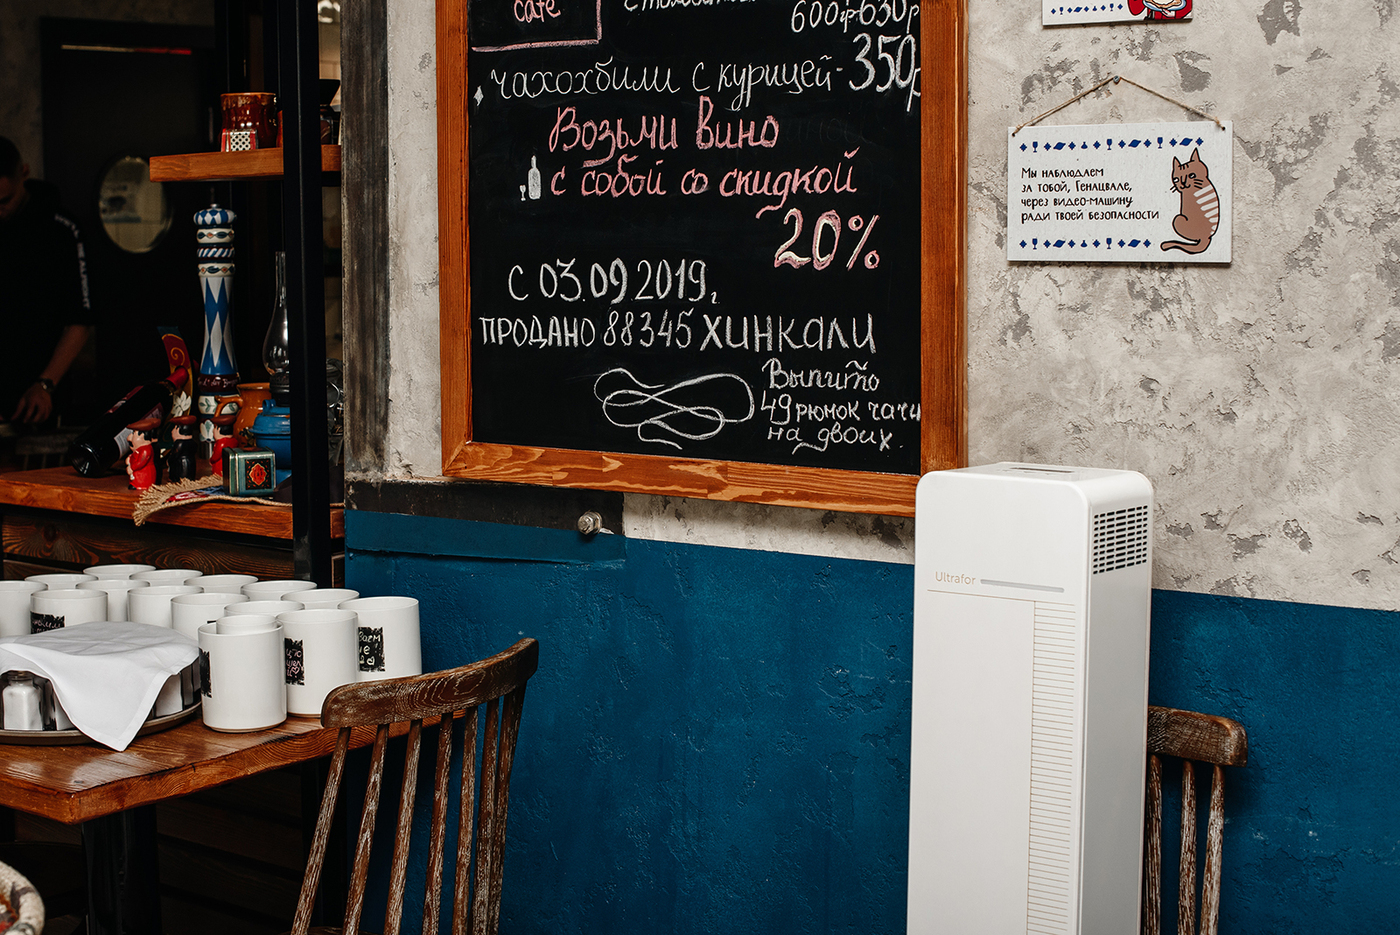 cafe
600р-630р
чахохбили с курицей - 350р
Возьми вино
с собой со скидкой
20%
С 03.09.2019г.
ПРОДАНО 88345 ХИНКАЛИ
Выпито
49 рюмок чачи
на двоих.
Мы наблюдаем
за тобой, Генацвале,
через видео-машину
ради твоей безопасности
Ultrafor